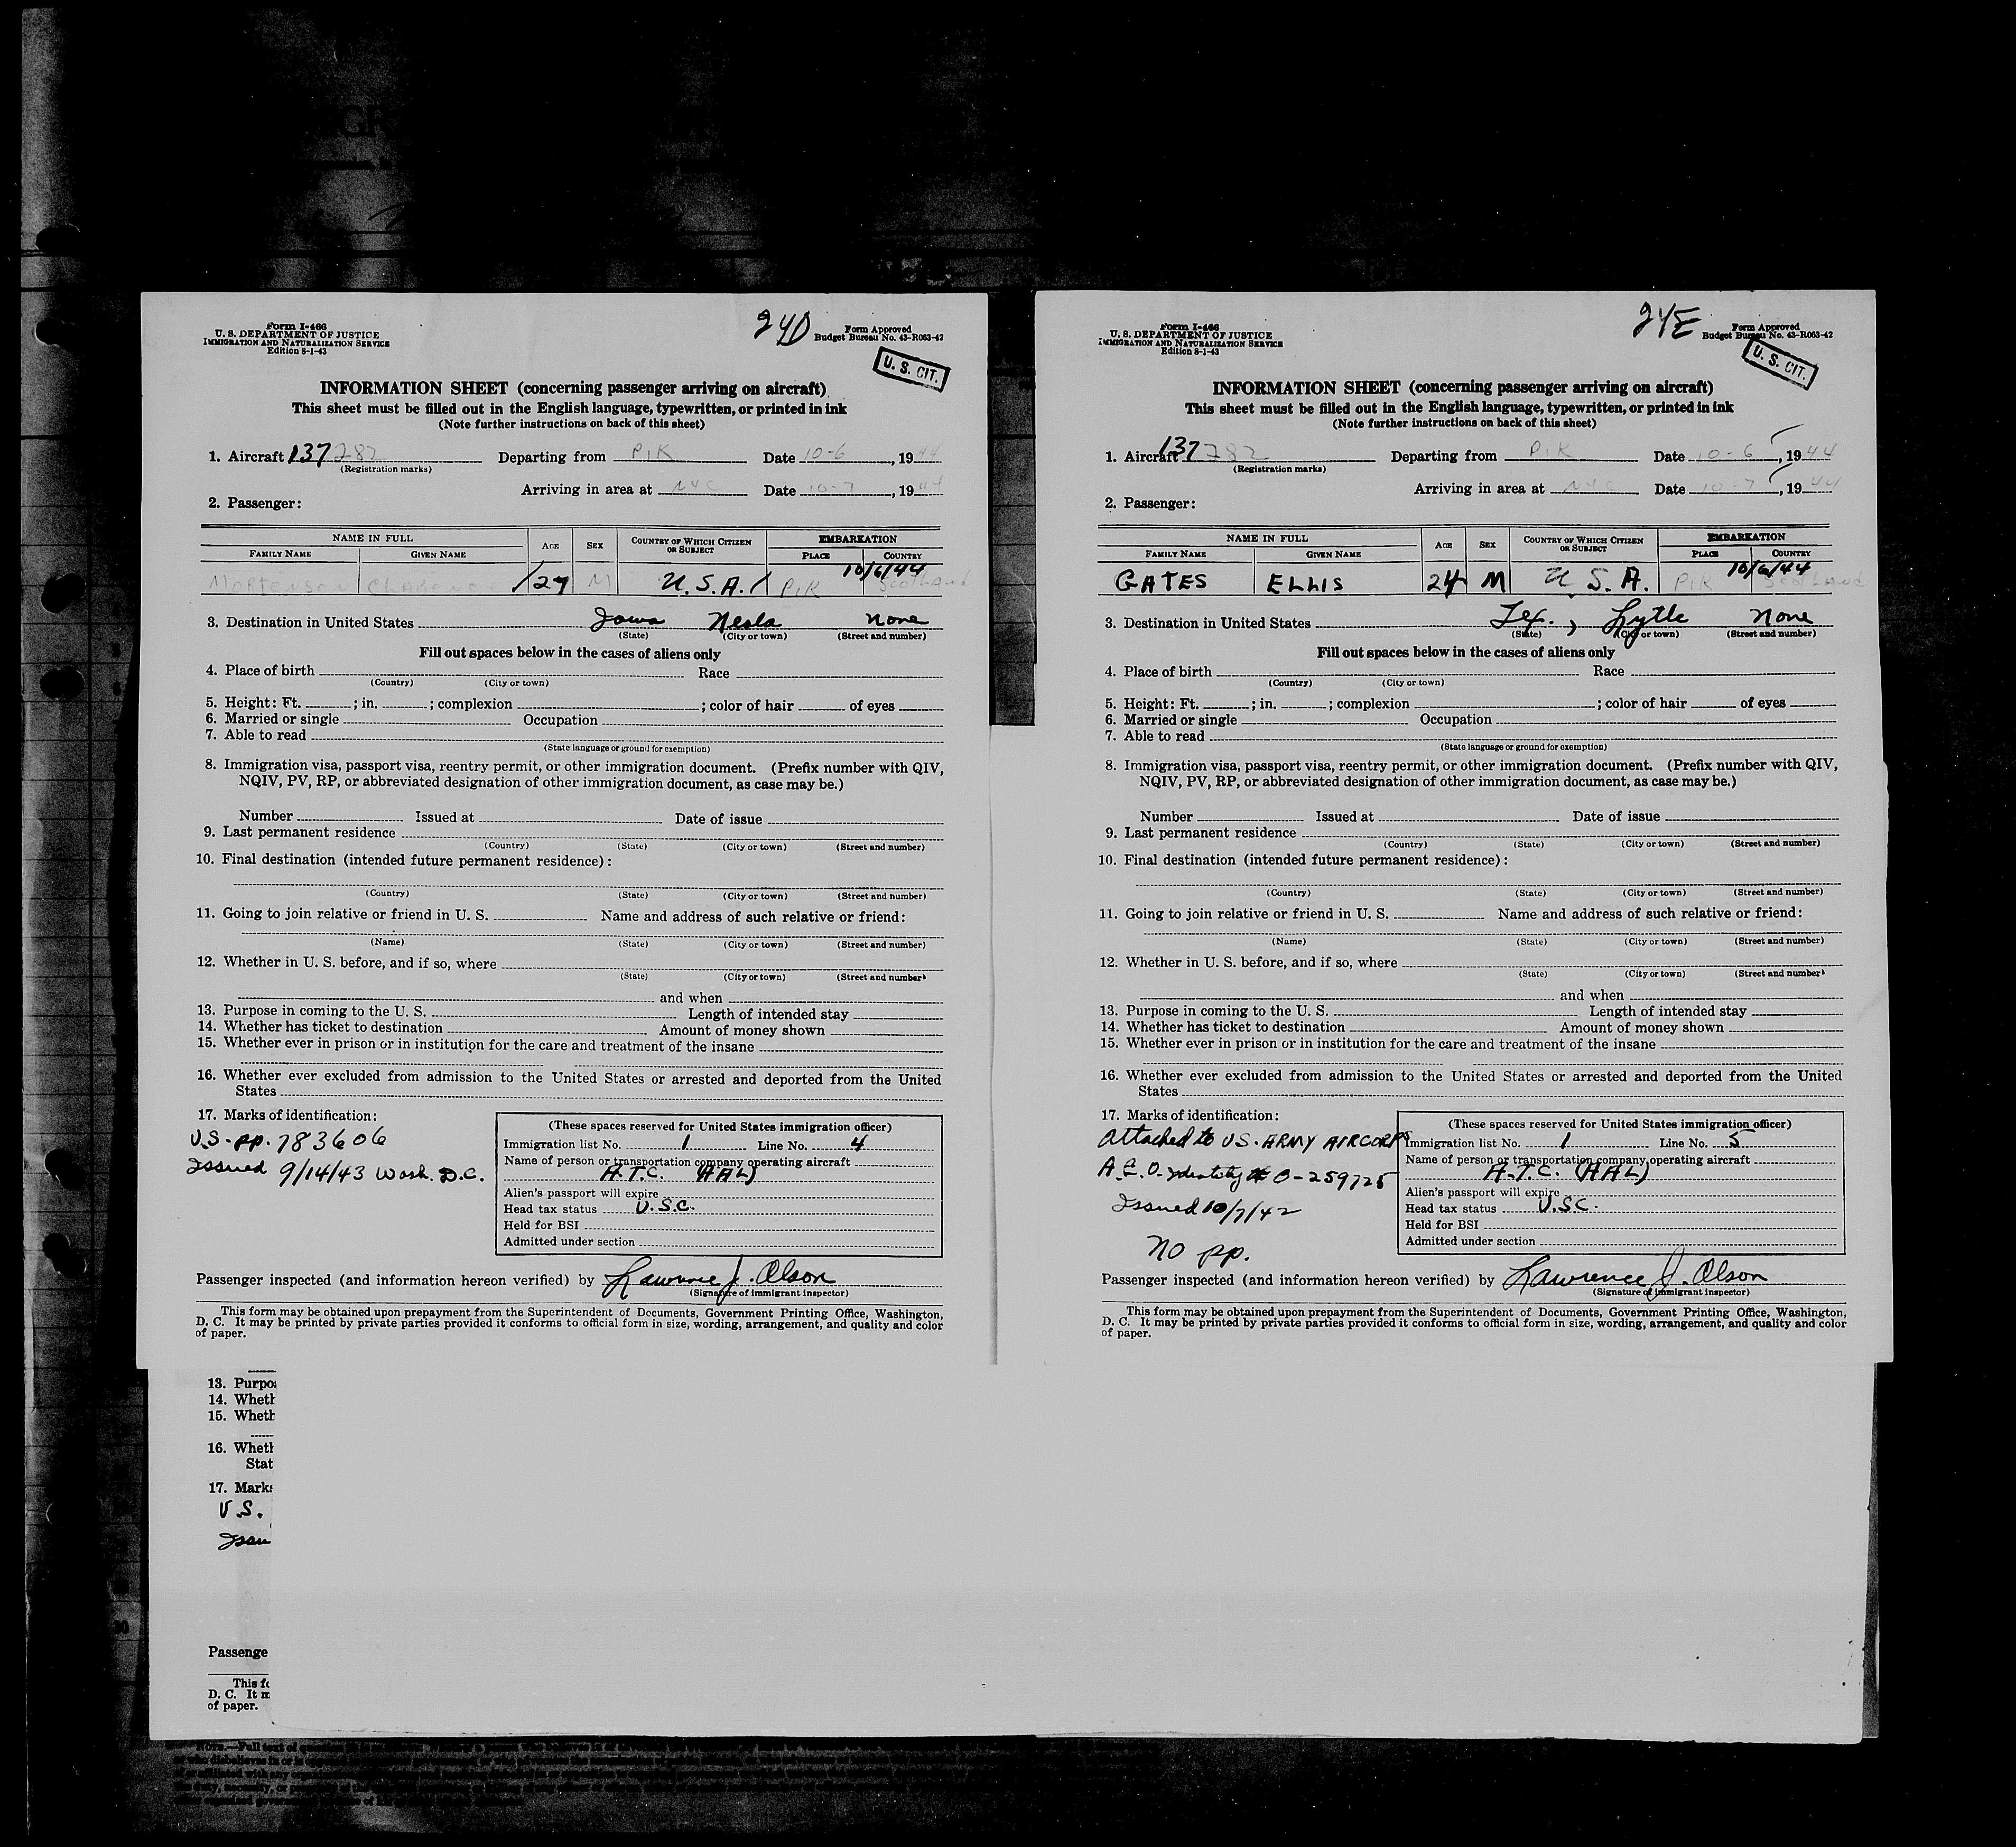 24D
Form I-466
U. S. DEPARTMENT OF JUSTICE
IMMIGRATION AND NATURALIZATION SERVICE
Edition 8-1-43
Form Approved
Budget Bureau No. 43-R063-42
U. S. CIT.
INFORMATION SHEET (concerning passenger arriving on aircraft)
This sheet must be filled out in the English language, typewritten, or printed in ink
(Note further instructions on back of this sheet)
1. Aircraft 137 782 Departing from PIK Date 10-6, 1944
(Registration marks)
Arriving in area at NYC Date 10-7, 1944
2. Passenger:
NAME IN FULL AGE SEX COUNTRY OF WHICH CITIZEN OR SUBJECT EMBARKATION
FAMILY NAME GIVEN NAME PLACE COUNTRY
10/6/44
MORTENSON CLARENCE 27 M U.S.A. PIK SCOTLAND
3. Destination in United States Iowa Neola None
(State) (City or town) (Street and number)
Fill out spaces below in the cases of aliens only
4. Place of birth Race
(Country) (City or town)
5. Height: Ft. ; in. ; complexion ; color of hair of eyes
6. Married or single Occupation
7. Able to read
(State language or ground for exemption)
8. Immigration visa, passport visa, reentry permit, or other immigration document. (Prefix number with QIV,
NQIV, PV, RP, or abbreviated designation of other immigration document, as case may be.)
Number Issued at Date of issue
9. Last permanent residence
(Country) (State) (City or town) (Street and number)
10. Final destination (intended future permanent residence):
(Country) (State) (City or town) (Street and number)
11. Going to join relative or friend in U. S. Name and address of such relative or friend:
(Name) (State) (City or town) (Street and number)
12. Whether in U. S. before, and if so, where
(State) (City or town) (Street and number)
and when
13. Purpose in coming to the U. S. Length of intended stay
14. Whether has ticket to destination Amount of money shown
15. Whether ever in prison or in institution for the care and treatment of the insane
16. Whether ever excluded from admission to the United States or arrested and deported from the United
States
17. Marks of identification:
U.S. pp. 783606
Issued 9/14/43 Wash. D.C.
(These spaces reserved for United States immigration officer)
Immigration list No. 1 Line No. 4
Name of person or transportation company operating aircraft
A.T.C. (AAL)
Alien's passport will expire
Head tax status U.S.C.
Held for BSI
Admitted under section
Passenger inspected (and information hereon verified) by Lawrence J. Olson
(Signature of immigrant inspector)
This form may be obtained upon prepayment from the Superintendent of Documents, Government Printing Office, Washington,
D. C. It may be printed by private parties provided it conforms to official form in size, wording, arrangement, and quality and color
of paper.
13. Purpo
14. Wheth
15. Wheth
16. Wheth
Stat
17. Marks
U.S.
Issu
Passenge
This fo
D. C. It m
of paper.
24E
Form I-466
U. S. DEPARTMENT OF JUSTICE
IMMIGRATION AND NATURALIZATION SERVICE
Edition 8-1-43
Form Approved
Budget Bureau No. 43-R063-42
U. S. CIT.
INFORMATION SHEET (concerning passenger arriving on aircraft)
This sheet must be filled out in the English language, typewritten, or printed in ink
(Note further instructions on back of this sheet)
1. Aircraft 137 782 Departing from PIK Date 10-6, 1944
(Registration marks)
Arriving in area at NYC Date 10-7, 1944
2. Passenger:
NAME IN FULL AGE SEX COUNTRY OF WHICH CITIZEN OR SUBJECT EMBARKATION
FAMILY NAME GIVEN NAME PLACE COUNTRY
10/6/44
GATES ELLIS 24 M U.S.A. PIK SCOTLAND
3. Destination in United States Tex., Lytle None
(State) (City or town) (Street and number)
Fill out spaces below in the cases of aliens only
4. Place of birth Race
(Country) (City or town)
5. Height: Ft. ; in. ; complexion ; color of hair of eyes
6. Married or single Occupation
7. Able to read
(State language or ground for exemption)
8. Immigration visa, passport visa, reentry permit, or other immigration document. (Prefix number with QIV,
NQIV, PV, RP, or abbreviated designation of other immigration document, as case may be.)
Number Issued at Date of issue
9. Last permanent residence
(Country) (State) (City or town) (Street and number)
10. Final destination (intended future permanent residence):
(Country) (State) (City or town) (Street and number)
11. Going to join relative or friend in U. S. Name and address of such relative or friend:
(Name) (State) (City or town) (Street and number)
12. Whether in U. S. before, and if so, where
(State) (City or town) (Street and number)
and when
13. Purpose in coming to the U. S. Length of intended stay
14. Whether has ticket to destination Amount of money shown
15. Whether ever in prison or in institution for the care and treatment of the insane
16. Whether ever excluded from admission to the United States or arrested and deported from the United
States
17. Marks of identification:
Attached to US. ARMY AIRCORPS
A.G.O. Identity # O-259725
Issued 10/7/42
No pp.
(These spaces reserved for United States immigration officer)
Immigration list No. 1 Line No. 5
Name of person or transportation company operating aircraft
A.T.C. (AAL)
Alien's passport will expire
Head tax status U.S.C.
Held for BSI
Admitted under section
Passenger inspected (and information hereon verified) by Lawrence J. Olson
(Signature of immigrant inspector)
This form may be obtained upon prepayment from the Superintendent of Documents, Government Printing Office, Washington,
D. C. It may be printed by private parties provided it conforms to official form in size, wording, arrangement, and quality and color
of paper.